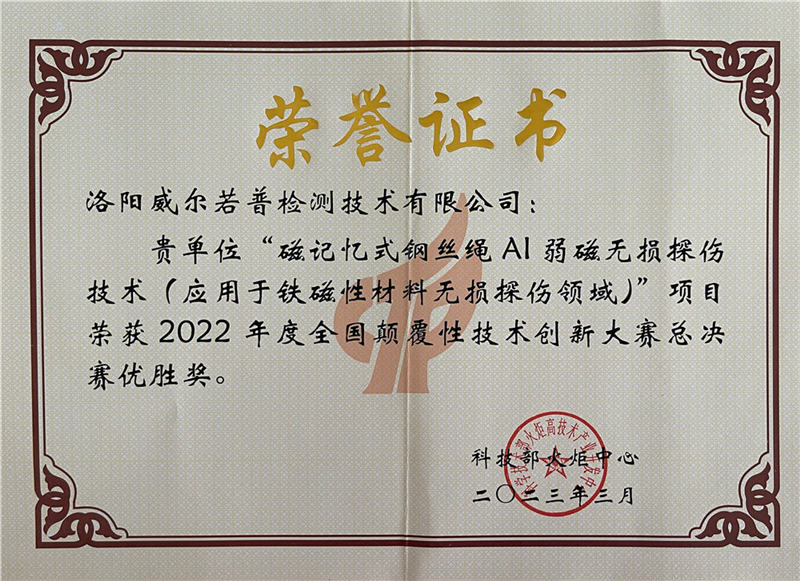 荣誉证书
洛阳威尔若普检测技术有限公司：
贵单位“磁记忆式钢丝绳AI弱磁无损探伤
技术（应用于铁磁性材料无损探伤领域）”项目
荣获2022年度全国颠覆性技术创新大赛总决
赛优胜奖。
科学技术部火炬高技术产业开发中心
科技部火炬中心
二〇二三年三月